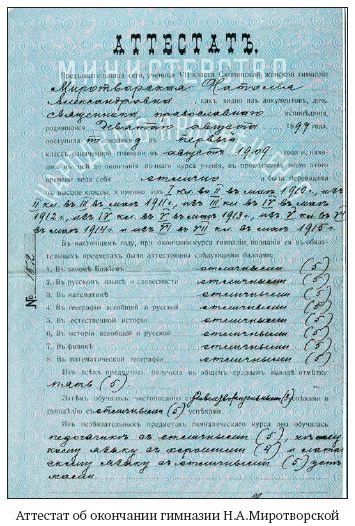 АТТЕСТАТЪ.
МИНИСТЕРСТВО
Предъявительница сего, ученица VII класса женской гимназіи
Миротворская Наталія
Александровна какъ видно изъ документовъ, дочь
священника, православнаго исповѣданія,
родившаяся августа 1899 года,
поступила по въ первый
классъ гимназіи въ августѣ 1909 года и,
до окончанія полнаго курса ученія, въ продолженіе всего этого
времени вела себя отлично переводима
въ высшіе классы, а именно: изъ I кл. во II въ маѣ 1910 г., изъ
II кл. въ III въ маѣ 1911 г., изъ III кл. въ IV въ маѣ
1912 г., изъ IV кл. въ V въ маѣ 1913 г., изъ V кл. въ VI
въ маѣ 1914 г. и изъ VI въ VII кл. въ маѣ 1915 г.
Въ настоящемъ году, при окончаніи курса гимназіи, познанія ея въ обя-
тельныхъ предметахъ были аттестованы слѣдующими баллами:
1. Въ законѣ Божіемъ отличными (5).
2. Въ русскомъ языкѣ и словесности отличными (5).
3. Въ математикѣ отличными (5).
4. Въ географіи всеобщей и русской отличными (5).
5. Въ естественной исторіи отличными (5).
6. Въ исторіи всеобщей и русской отличными (5).
7. Въ физикѣ отличными (5).
8. Въ математической географіи отличными (5).
Изъ всѣхъ предметовъ получила въ общемъ среднемъ выводѣ отмѣтку
пять (5).
Затѣмъ обучалась чистописанію успѣхами и
рукодѣлію съ отличными (5) успѣхами.
Изъ необязательныхъ предметовъ гимназическаго курса она обучалась
педагогикѣ съ отличными (5),
языку съ хорошими (4) и
языку съ отличными (5)
№
Аттестат об окончании гимназии Н.А.Миротворской